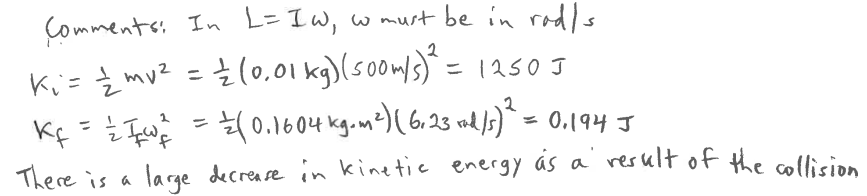 Comments: In L = Iω, ω must be in rad/s
Ki = ½ mv² = ½(0.01 kg)(500 m/s)² = 1250 J
Kf = ½ I_f ω_f² = ½(0.1604 kg·m²)(6.23 rad/s)² = 0.194 J
There is a large decrease in kinetic energy as a result of the collision